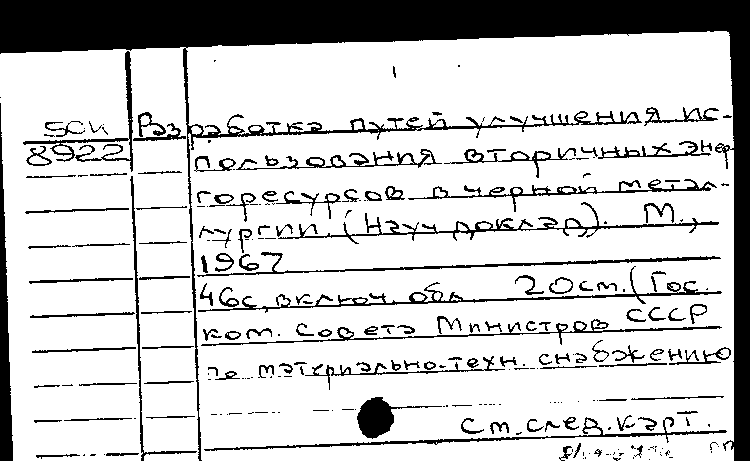 1
5си Разработка путей улучшения ис-
8922 пользования вторичных энер-
горесурсов в черной метал-
лургии. (Науч доклад). М.,
1967
46с, включ. обл. 20см. (Гос.
ком. Совета Министров СССР
по материально-техн. снабжению
См. след. карт.